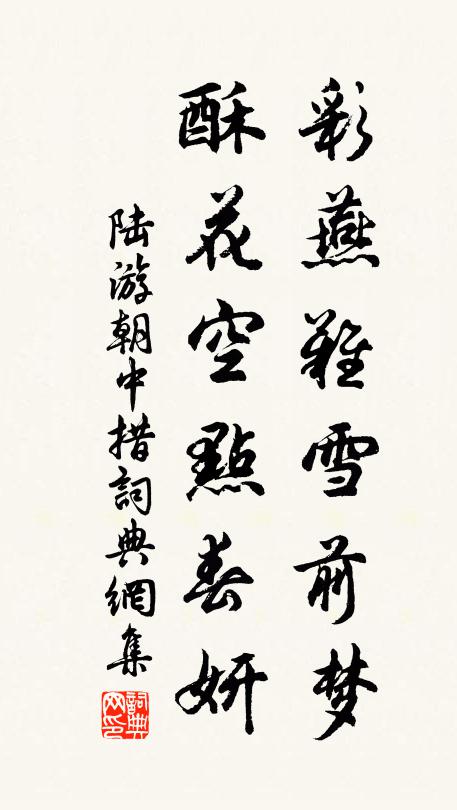 彩燕難雪前梦
酥花空點春妍
陆游朝中措詞典網集
詞典网印